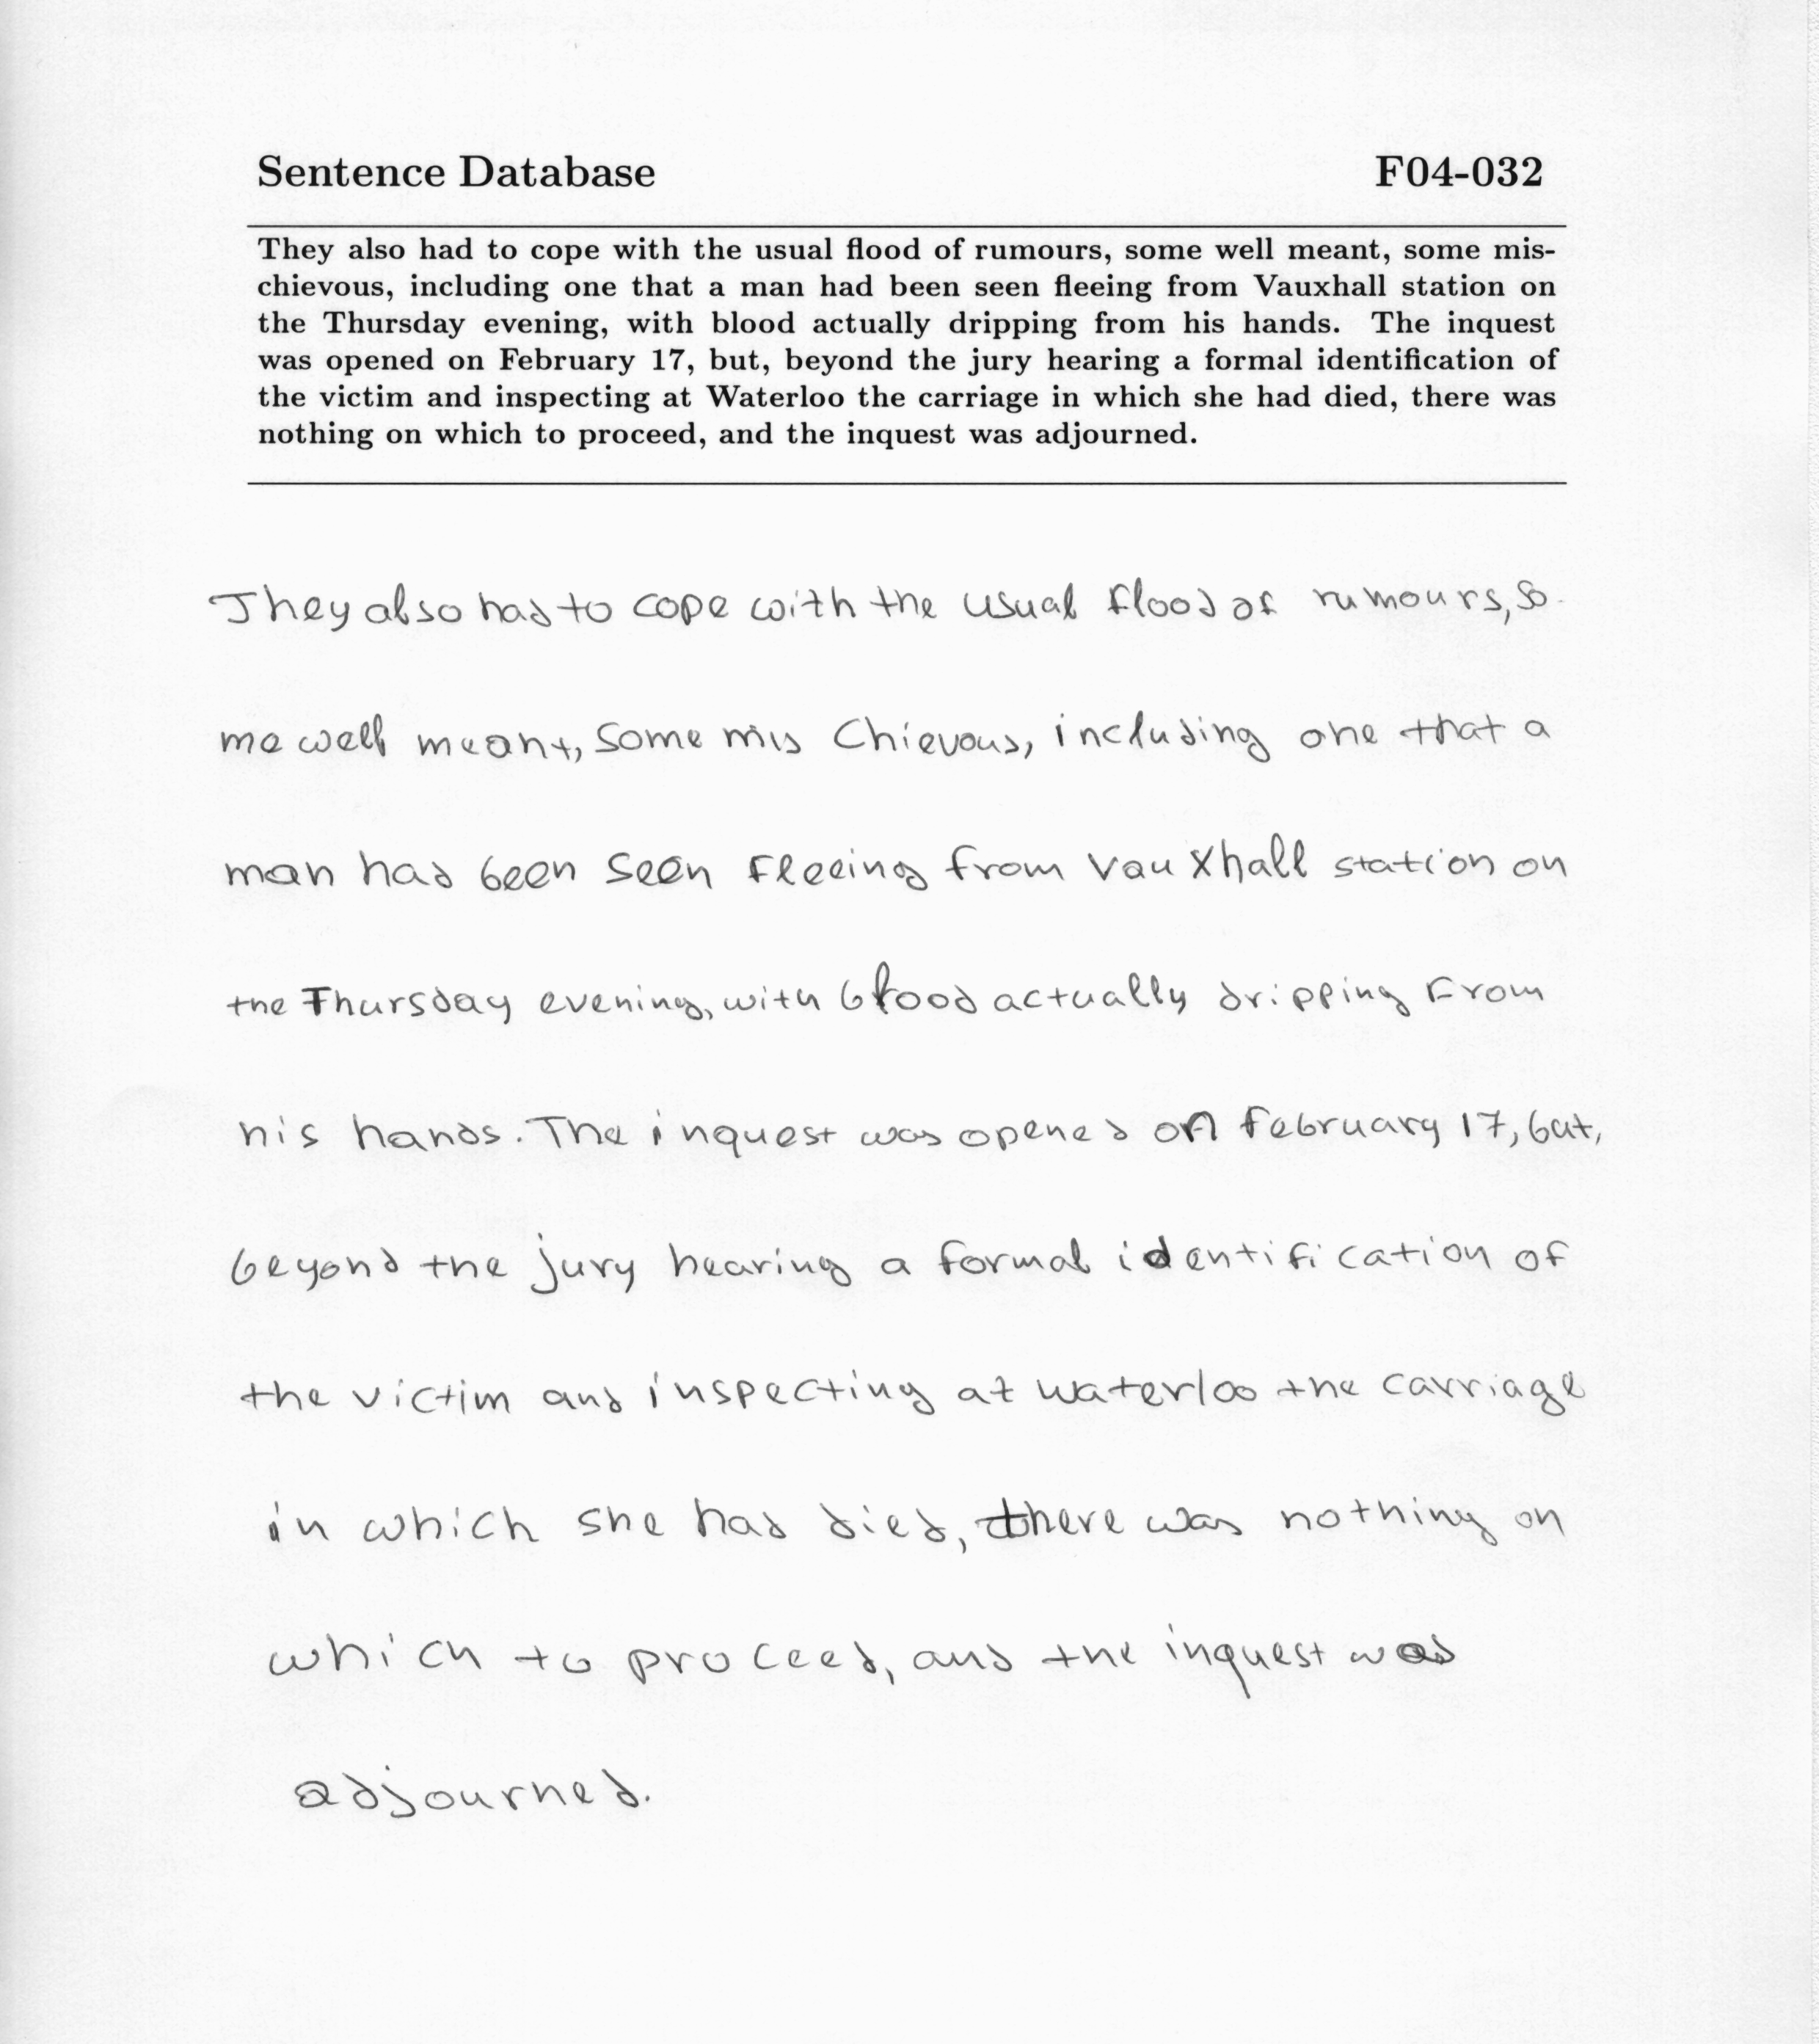 Sentence Database F04-032
They also had to cope with the usual flood of rumours, some well meant, some mis-
chievous, including one that a man had been seen fleeing from Vauxhall station on
the Thursday evening, with blood actually dripping from his hands. The inquest
was opened on February 17, but, beyond the jury hearing a formal identification of
the victim and inspecting at Waterloo the carriage in which she had died, there was
nothing on which to proceed, and the inquest was adjourned.
They also had to cope with the usual flood of rumours, so-
me well meant, some mis chievous, including one that a
man had been seen fleeing from Vauxhall station on
the Thursday evening, with blood actually dripping from
his hands. The inquest was opened on february 17, but,
beyond the jury hearing a formal identification of
the victim and inspecting at waterloo the carriage
in which she had died, there was nothing on
which to proceed, and the inquest was
adjourned.